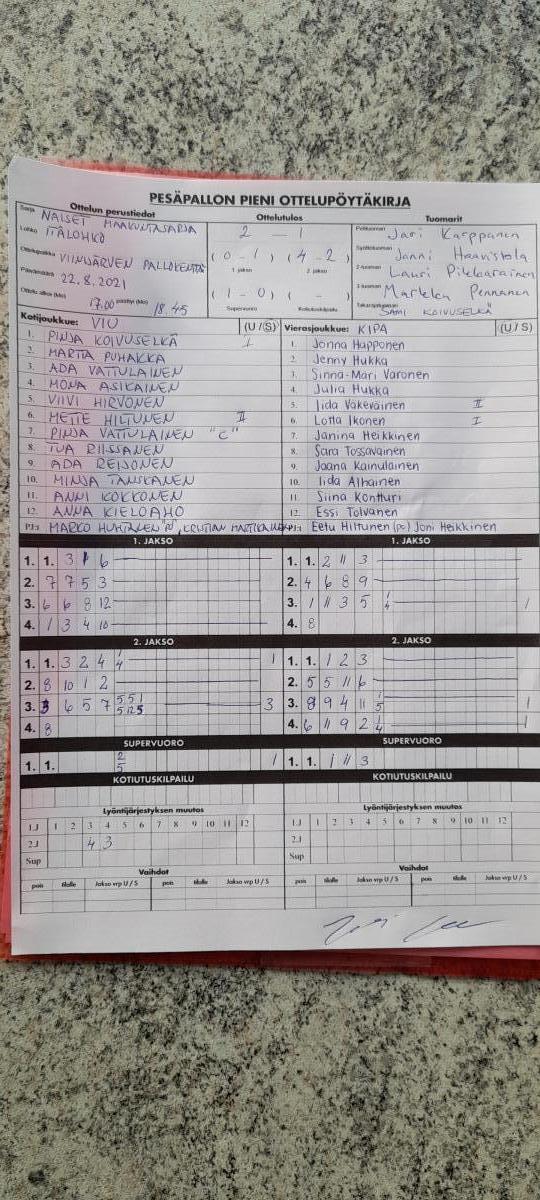 PESÄPALLON PIENI OTTELUPÖYTÄKIRJA
Ottelun perustiedot Ottelutulos Tuomarit
Sarja NAISET MAAKUNTASARJA 2 - 1 Pelituomari Jari Karppanen
Lohko ITÄLOHKO Syöttötuomari Janni Haavistola
Ottelupaikka VIINIJÄRVEN PALLOKENTTÄ (0-1) (4-2) 2-tuomari Lauri Pikkarainen
1. jakso 2. jakso
Päivämäärä 22.8.2021 3-tuomari Markku Pennanen
Ottelu alkoi (klo) 17.00 päättyi (klo) 18.45 (1-0) ( - ) Takarajatuomari SAMI KOIVUSELKÄ
Supervuoro Kotiutuskilpailu
Kotijoukkue: VIU (U/S) Vierasjoukkue: KIPA (U/S)
1. PINJA KOIVUSELKÄ I 1. Jonna Happonen
2. MARTTA PUHAKKA 2. Jenny Hukka
3. ADA VATTULAINEN 3. Sinna-Mari Varonen
4. MONA ASIKAINEN 4. Julia Hukka
5. VIIVI HIRVONEN 5. Iida Väkeväinen II
6. METTE HILTUNEN II 6. Lotta Ikonen I
7. PINJA VATTULAINEN "C" 7. Janina Heikkinen
8. TUA RIISSANEN 8. Sara Tossavainen
9. ADA REIJONEN 9. Jaana Kainulainen
10. MINJA TANSKANEN 10. Iida Alhainen
11. ANNI KOKKONEN 11. Siina Kontturi
12. ANNA KIELOAHO 12. Essi Tolvanen
PJ:t MARKO HUHTANEN PJ:t Eetu Hiltunen (pj) Joni Heikkinen
1. JAKSO 1. JAKSO
1. 1. 3 1 6 1. 1. 2 11 3
2. 7 7 5 3 2. 4 6 8 9
3. 6 6 8 12 3. 1 11 3 5 1/4 1
4. 1 3 4 10 4. 8
2. JAKSO 2. JAKSO
1. 1. 3 2 4 1/4 1 1. 1. 1 2 3
2. 8 10 1 2 2. 5 5 11 6
3. 6 5 7 3 3. 8 9 4 11 1/5 1
4. 8 4. 6 11 9 2 1/4 1
SUPERVUORO SUPERVUORO
1. 1. 2/5 1 1. 1. 1 11 3
KOTIUTUSKILPAILU KOTIUTUSKILPAILU
Lyöntijärjestyksen muutos Lyöntijärjestyksen muutos
1.J 1 2 3 4 5 6 7 8 9 10 11 12 1.J 1 2 3 4 5 6 7 8 9 10 11 12
2.J 4 3 2.J
Sup Sup
Vaihdot Vaihdot
pois tilalle Jakso vrp U / S pois tilalle Jakso vrp U / S pois tilalle Jakso vrp U / S pois tilalle Jakso vrp U / S